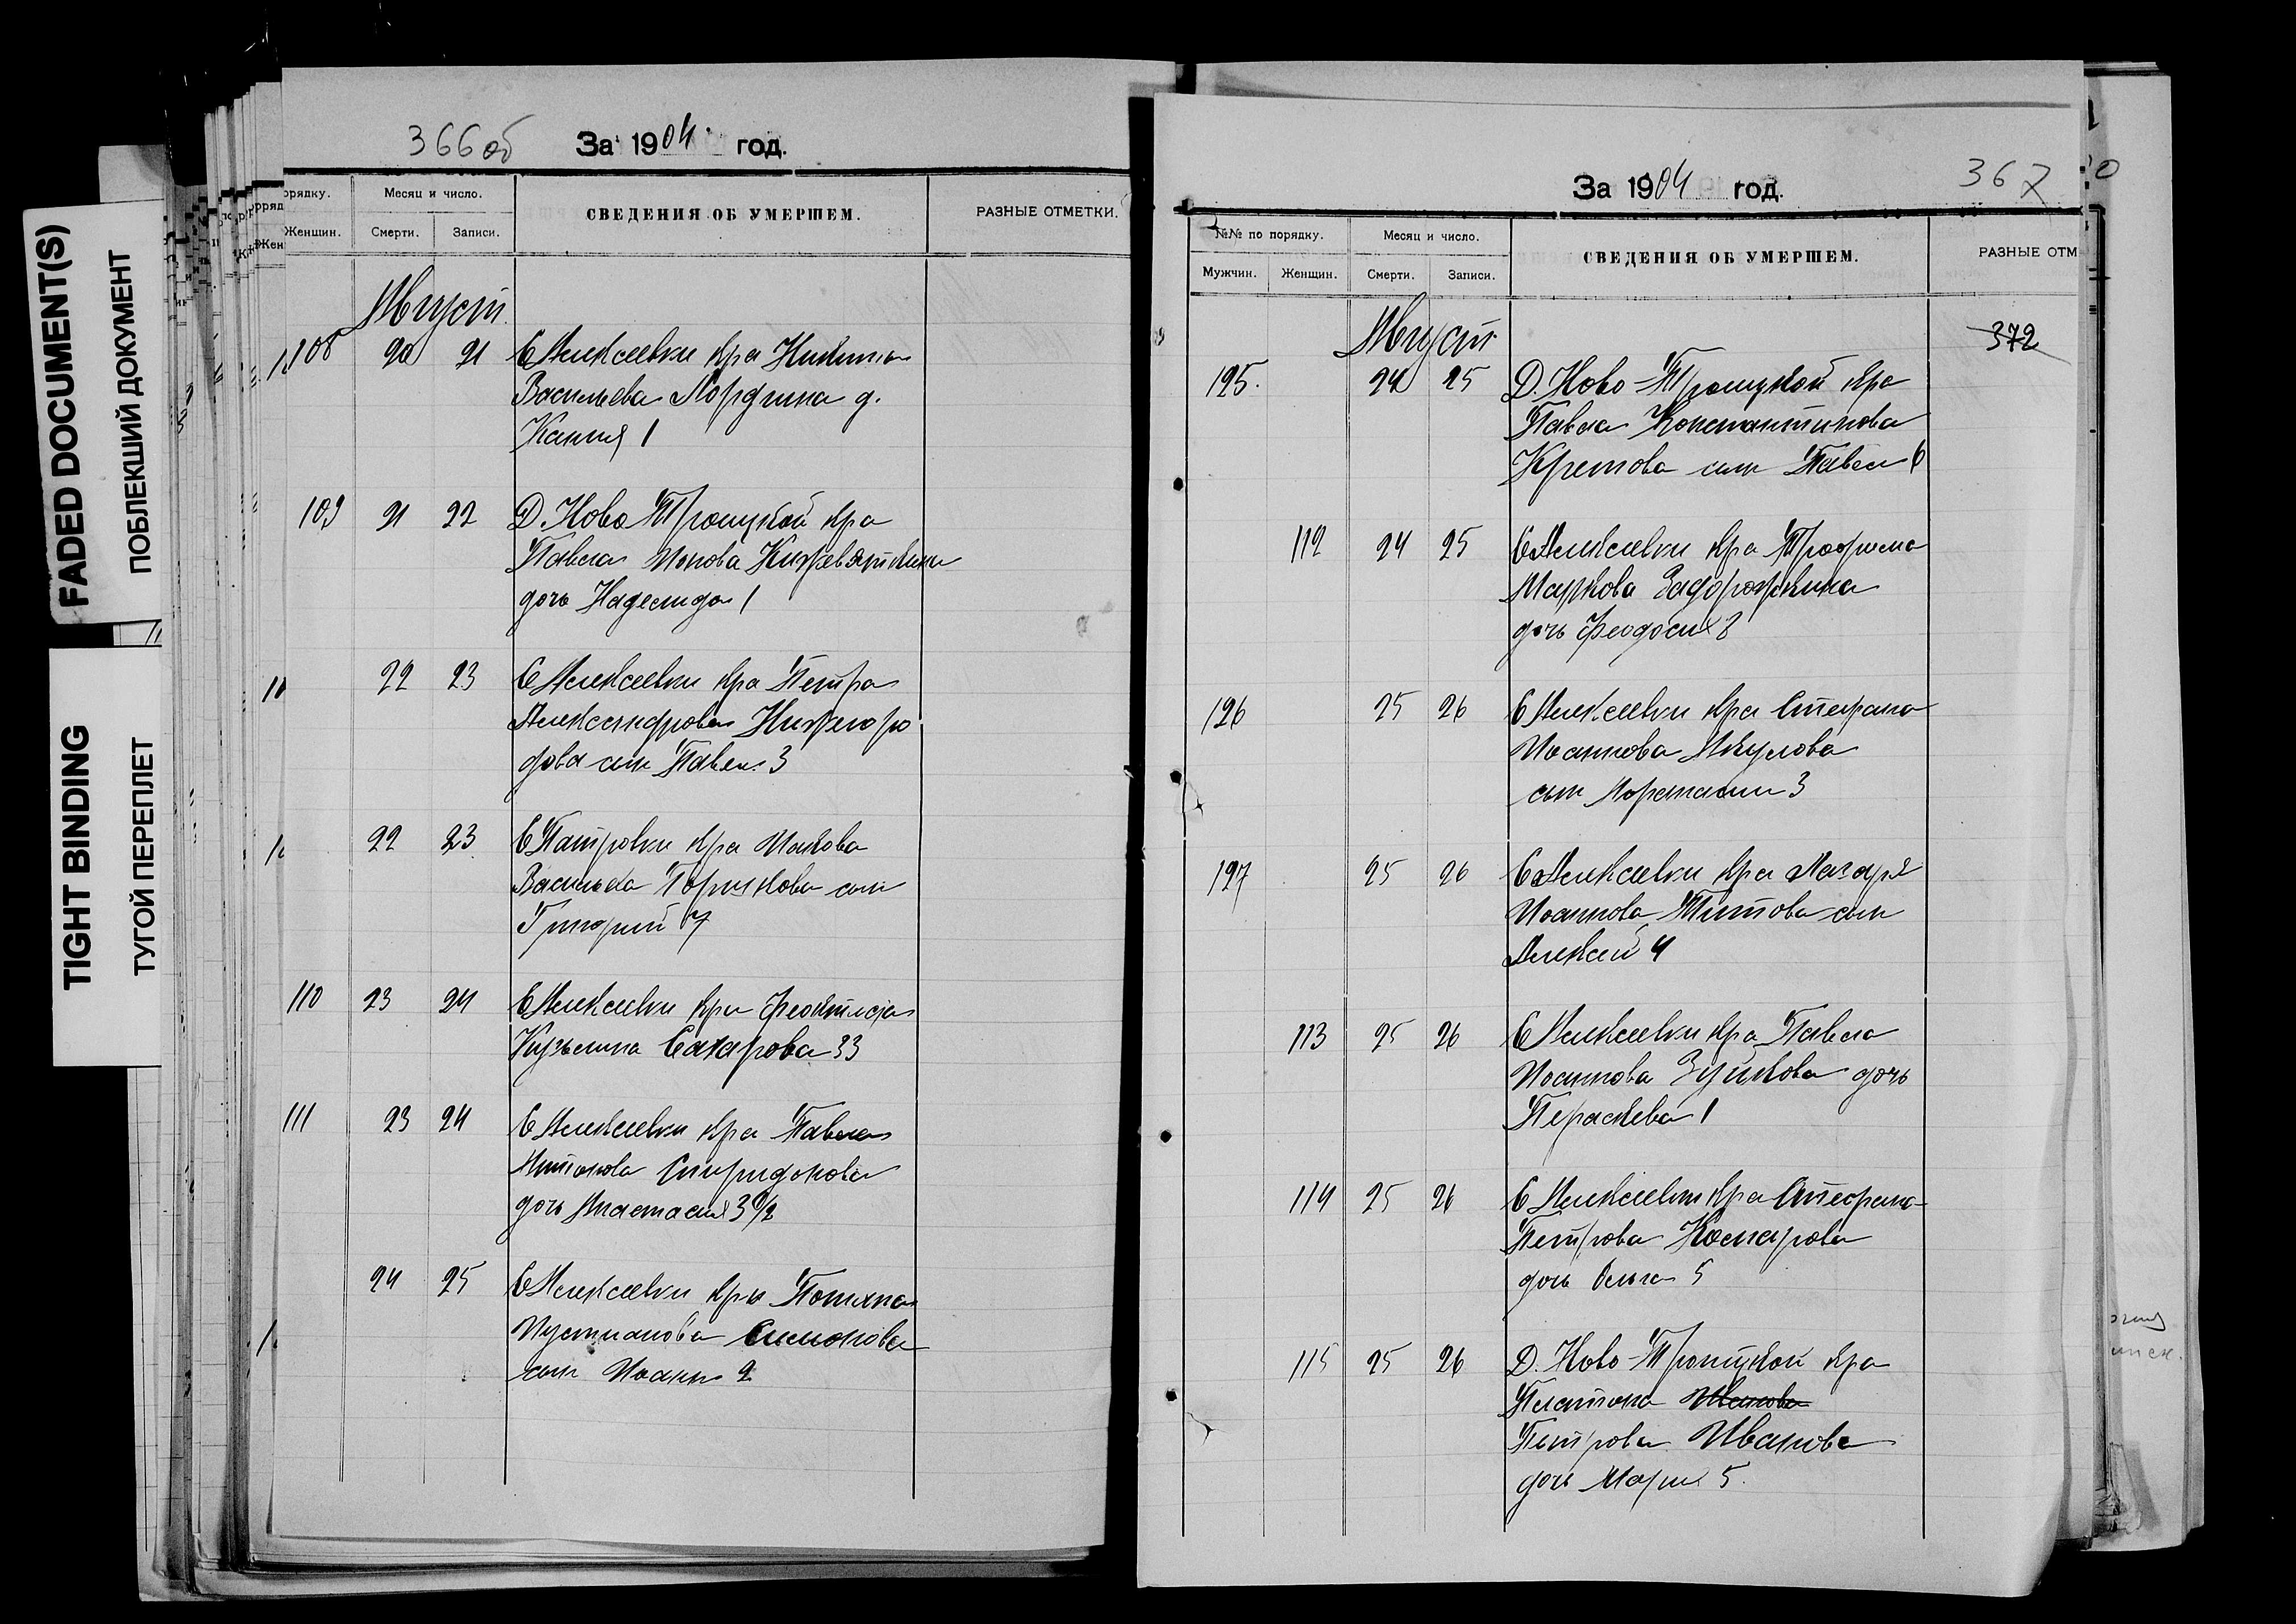 FADED DOCUMENT(S)
ПОБЛЕКШИЙ ДОКУМЕНТ
TIGHT BINDING
ТУГОЙ ПЕРЕПЛЕТ
366об За 1904 год.
орядку. Месяц и число. СВЕДЕНИЯ ОБ УМЕРШЕМ. РАЗНЫЕ ОТМЕТКИ.
Женщин. Смерти. Записи.
Август
108 20 21 С Алексеевки кра Никиты
Васильева д.
Ксения 1
109 21 22 Д. Ново Троицкой кра
Павла Ионова
дочь Надежда 1
22 23 С Алексеевки кра Петра
Александрова Нижегоро
дова сын Павел 3
22 23 С Патровки кра Иакова
Васильева Горшкова сын
Григорий 7
110 23 24 С Алексеевки кра Феоктиста
Кузьмина Сахарова 33
111 23 24 С Алексеевки кра Павла
Антонова Спиридонова
дочь Анастасия 3 1/2
24 25 С Алексеевки кра Потапа
Иустианова Симонова
сын Иоанн 2
За 1904 год. 367
№№ по порядку. Месяц и число. СВЕДЕНИЯ ОБ УМЕРШЕМ. РАЗНЫЕ ОТМ
Мужчин. Женщин. Смерти. Записи.
Август
372
125. 24 25 Д. Ново-Троицкой кра
Павла Константинова
Кретова сын Павел 6
112 24 25 С Алексеевки кра Трофима
Маркова Задорожнина
дочь Феодосия 8
126 25 26 С Алексеевки кра Стефана
Иоаннова Акулова
сын 3
127 25 26 С Алексеевки кра Лазаря
Иоаннова Титова сын
Алексей 4
113 25 26 С Алексеевки кра Павла
Иоаннова Зуйкова дочь
Параскева 1
114 25 26 С Алексеевки кра Стефана
Петрова Комарова
дочь Ольга 5
115 25 26 Д. Ново-Троицкой кра
Платона Иванова
Петрова Иванова
дочь Мария 5.